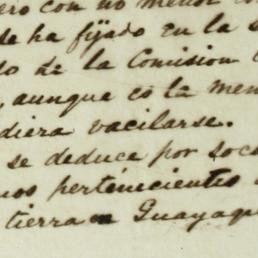 ero con no menor con
se ha fijado en la s
do de la Comision
, aunque es la men
diera vacilarse.
se deduce por soc
nos pertenecientes
tierra en Guayaqu